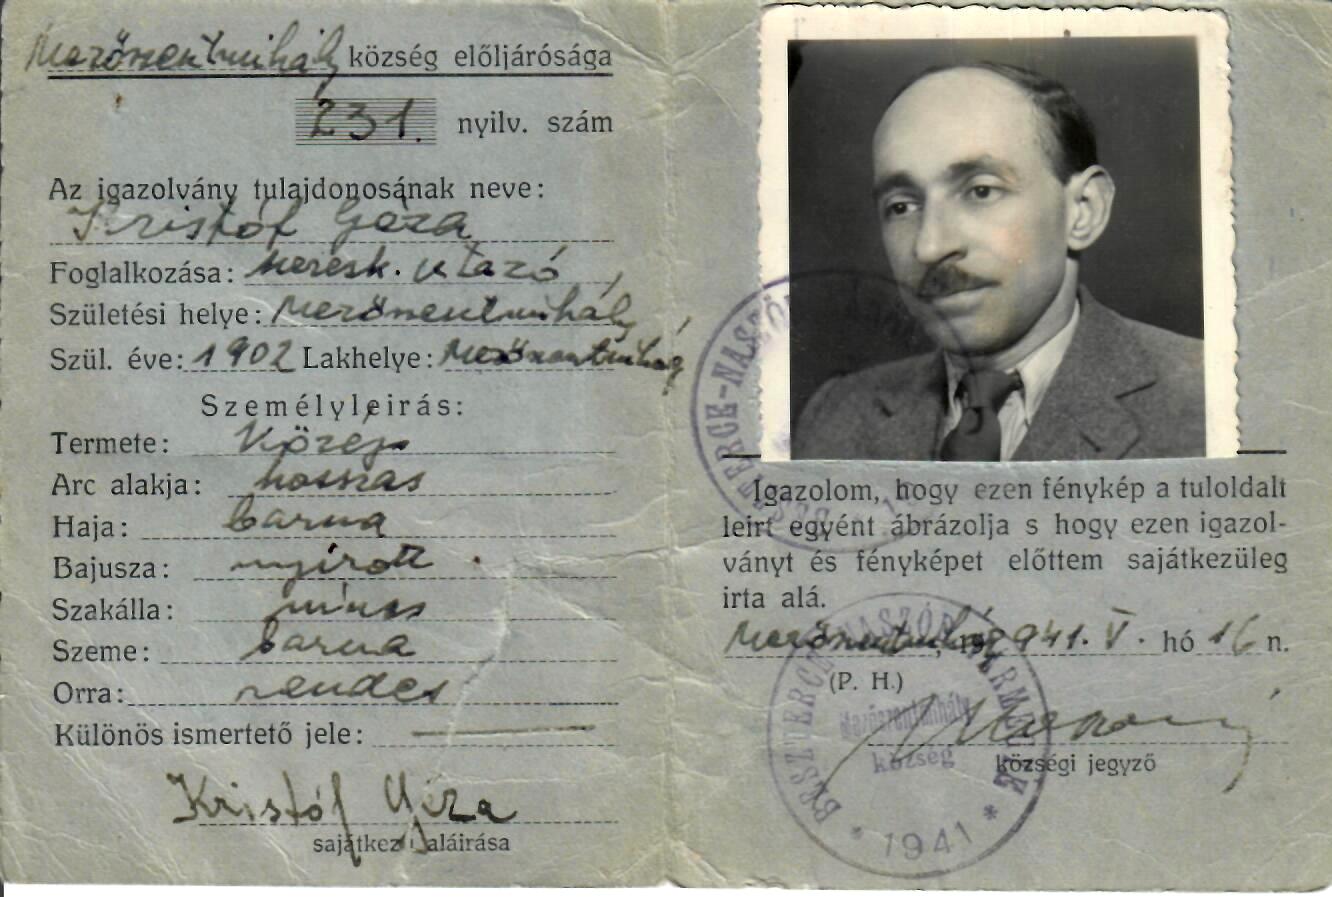 Mezőszentmihály község előljárósága
231. nyilv. szám
Az igazolvány tulajdonosának neve:
Kristóf Géza
Foglalkozása: keresk. utazó
Születési helye: Mezőszentmihály
Szül. éve: 1902 Lakhelye: Mezőszentmihály
Személyleirás:
Termete: közép
Arc alakja: hosszas
Haja: barna
Bajusza: nyirott
Szakálla: nincs
Szeme: barna
Orra: rendes
Különös ismertető jele: —
Kristóf Géza
sajátkezű aláirása
BESZTERCE-NASZÓD
Igazolom, hogy ezen fénykép a tuloldalt
leirt egyént ábrázolja s hogy ezen igazol-
ványt és fényképet előttem sajátkezüleg
irta alá.
Mezőszentmihály, 1941. V. hó 16 n.
(P. H.)
községi jegyző
BESZTERCE-NASZÓD VÁRMEGYE
Mezőszentmihály
község
* 1941 *